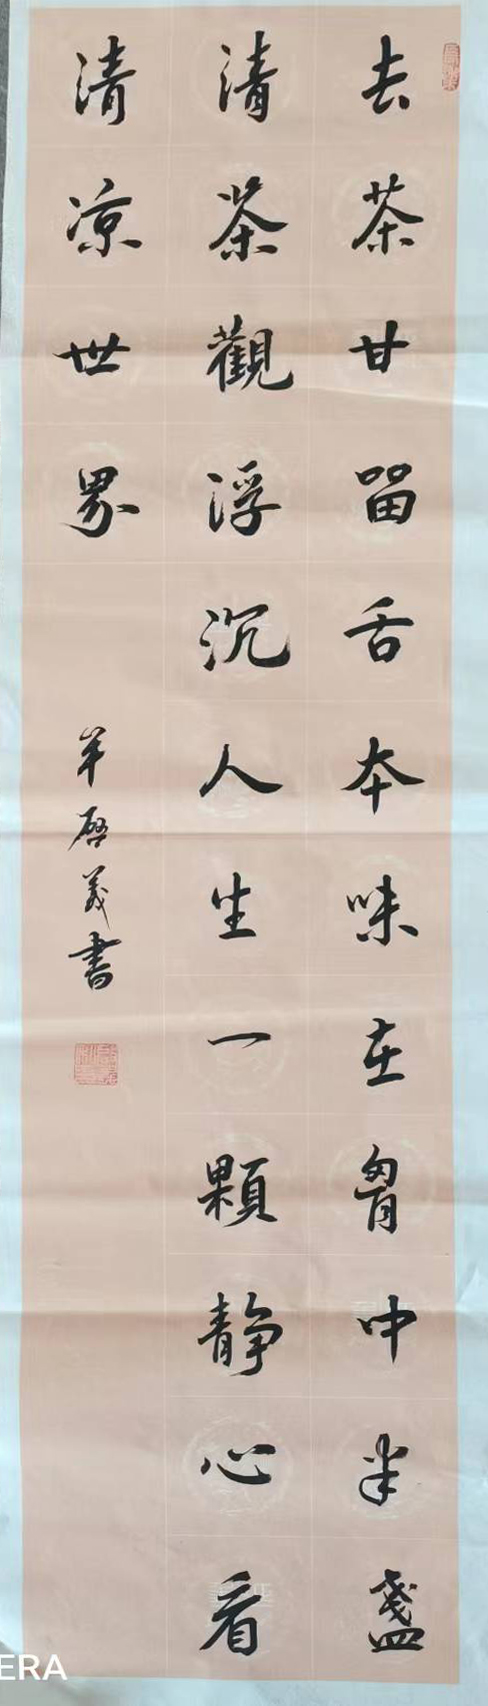 去茶甘留舌本味在胷中半盞
清茶觀浮沉人生一顆靜心看
清凉世界
羊啓義書
ERA